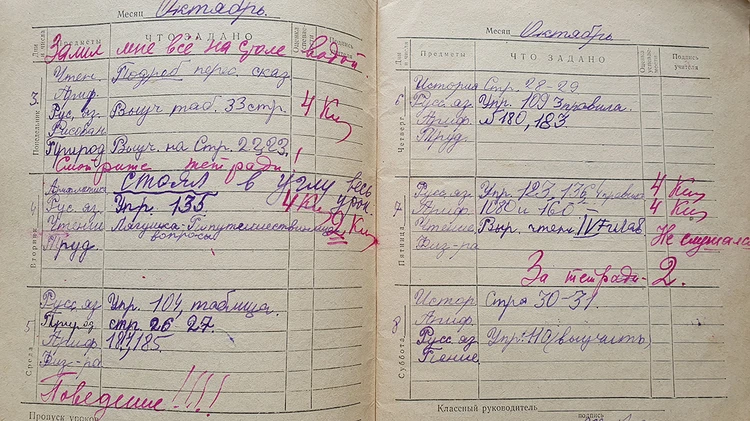 Месяц Октябрь.
Дни и числа Предметы ЧТО ЗАДАНО Оценка успеваемости Подпись учителя
Залил мне всё на столе водой
3 Понедельник
Чтен. Подроб перес, сказ
Ариф.
Рус, яз. Выуч таб. 33 стр. 4 Ки
Рисован
Природ Выуч на Стр. 22,23.
Смотрите тетради!
4 Вторник
Арифметика Стоял в углу весь урок
Рус. яз. Упр. 135 4 Ки
Чтение Лягушка-Путешественница 2 Ки
вопросы
Труд.
5 Среда
Русс. яз Упр. 104, таблица.
Природ стр. 26 27.
Ариф. 185.
Физ-ра
Поведение!!!!
Пропуск уроков
Месяц Октябрь
Дни и числа Предметы ЧТО ЗАДАНО Оценка успеваемости Подпись учителя
6 Четверг
История Стр. 28-29
Русс. яз. Упр. 109 3 правила.
Ариф. №180, 183
Труд.
7 Пятница
Русс. яз. Упр. 123 4 Ки
Ариф. 1080 и 160 4 Ки
Чтение Выр. чтен. Не слушался
Физ-ра
За тетради 2.
8 Суббота
Истор. Стра 30-31.
Ариф.
Русс яз Упр. 110 (выучить)
Пение
Классный руководитель
подпись